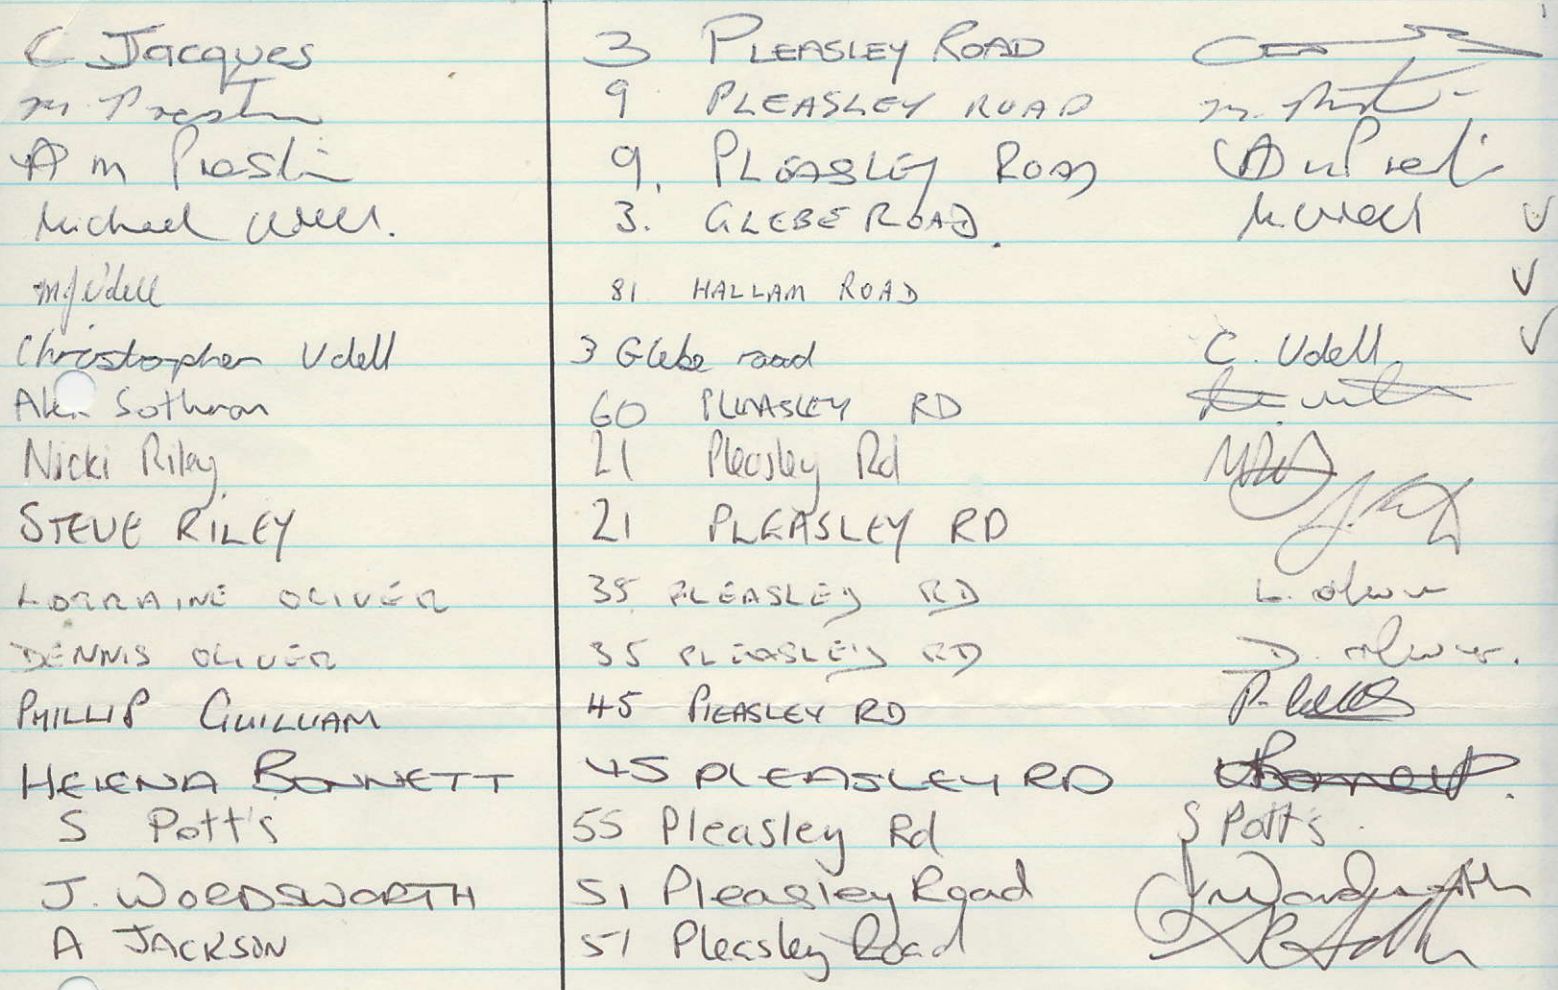 C Jacques 3 PLEASLEY ROAD
M. Preston 9 PLEASLEY ROAD M. Preston
A M Preston 9. PLEASLEY ROAD A M Preston
Michael Udell. 3. GLEBE ROAD. M. Udell V
M J Udell 81 HALLAM ROAD V
Christopher Udell 3 Glebe road C. Udell. V
Alan Sotheran 60 PLEASLEY RD
Nicki Riley 21 Pleasley Rd
STEVE RILEY 21 PLEASLEY RD
LORRAINE OLIVER 35 PLEASLEY RD L. Oliver
DENNIS OLIVER 35 PLEASLEY RD D. Oliver.
PHILLIP GUILLIAM 45 PLEASLEY RD
HELENA BONNETT 45 PLEASLEY RD HBonnett.
S Pott's 55 Pleasley Rd S Pott's
J. WORDSWORTH 51 Pleasley Road J Wordsworth
A JACKSON 51 Pleasley Road